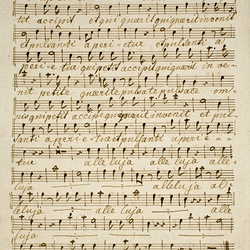 tit accipit et qui quærit invenit
et pulsanti aperi-etur pulsanti a
peri-e tur qui petit accipit qui quærit in ve-
nit petite quærite pulsate pulsate om
nis qui petit accipit quærit invenit et pul-
santi aperietur et pulsanti aperi-e-
tur alleluja alle
luja alleluja al
leluja alleluja alle
luja alle luja